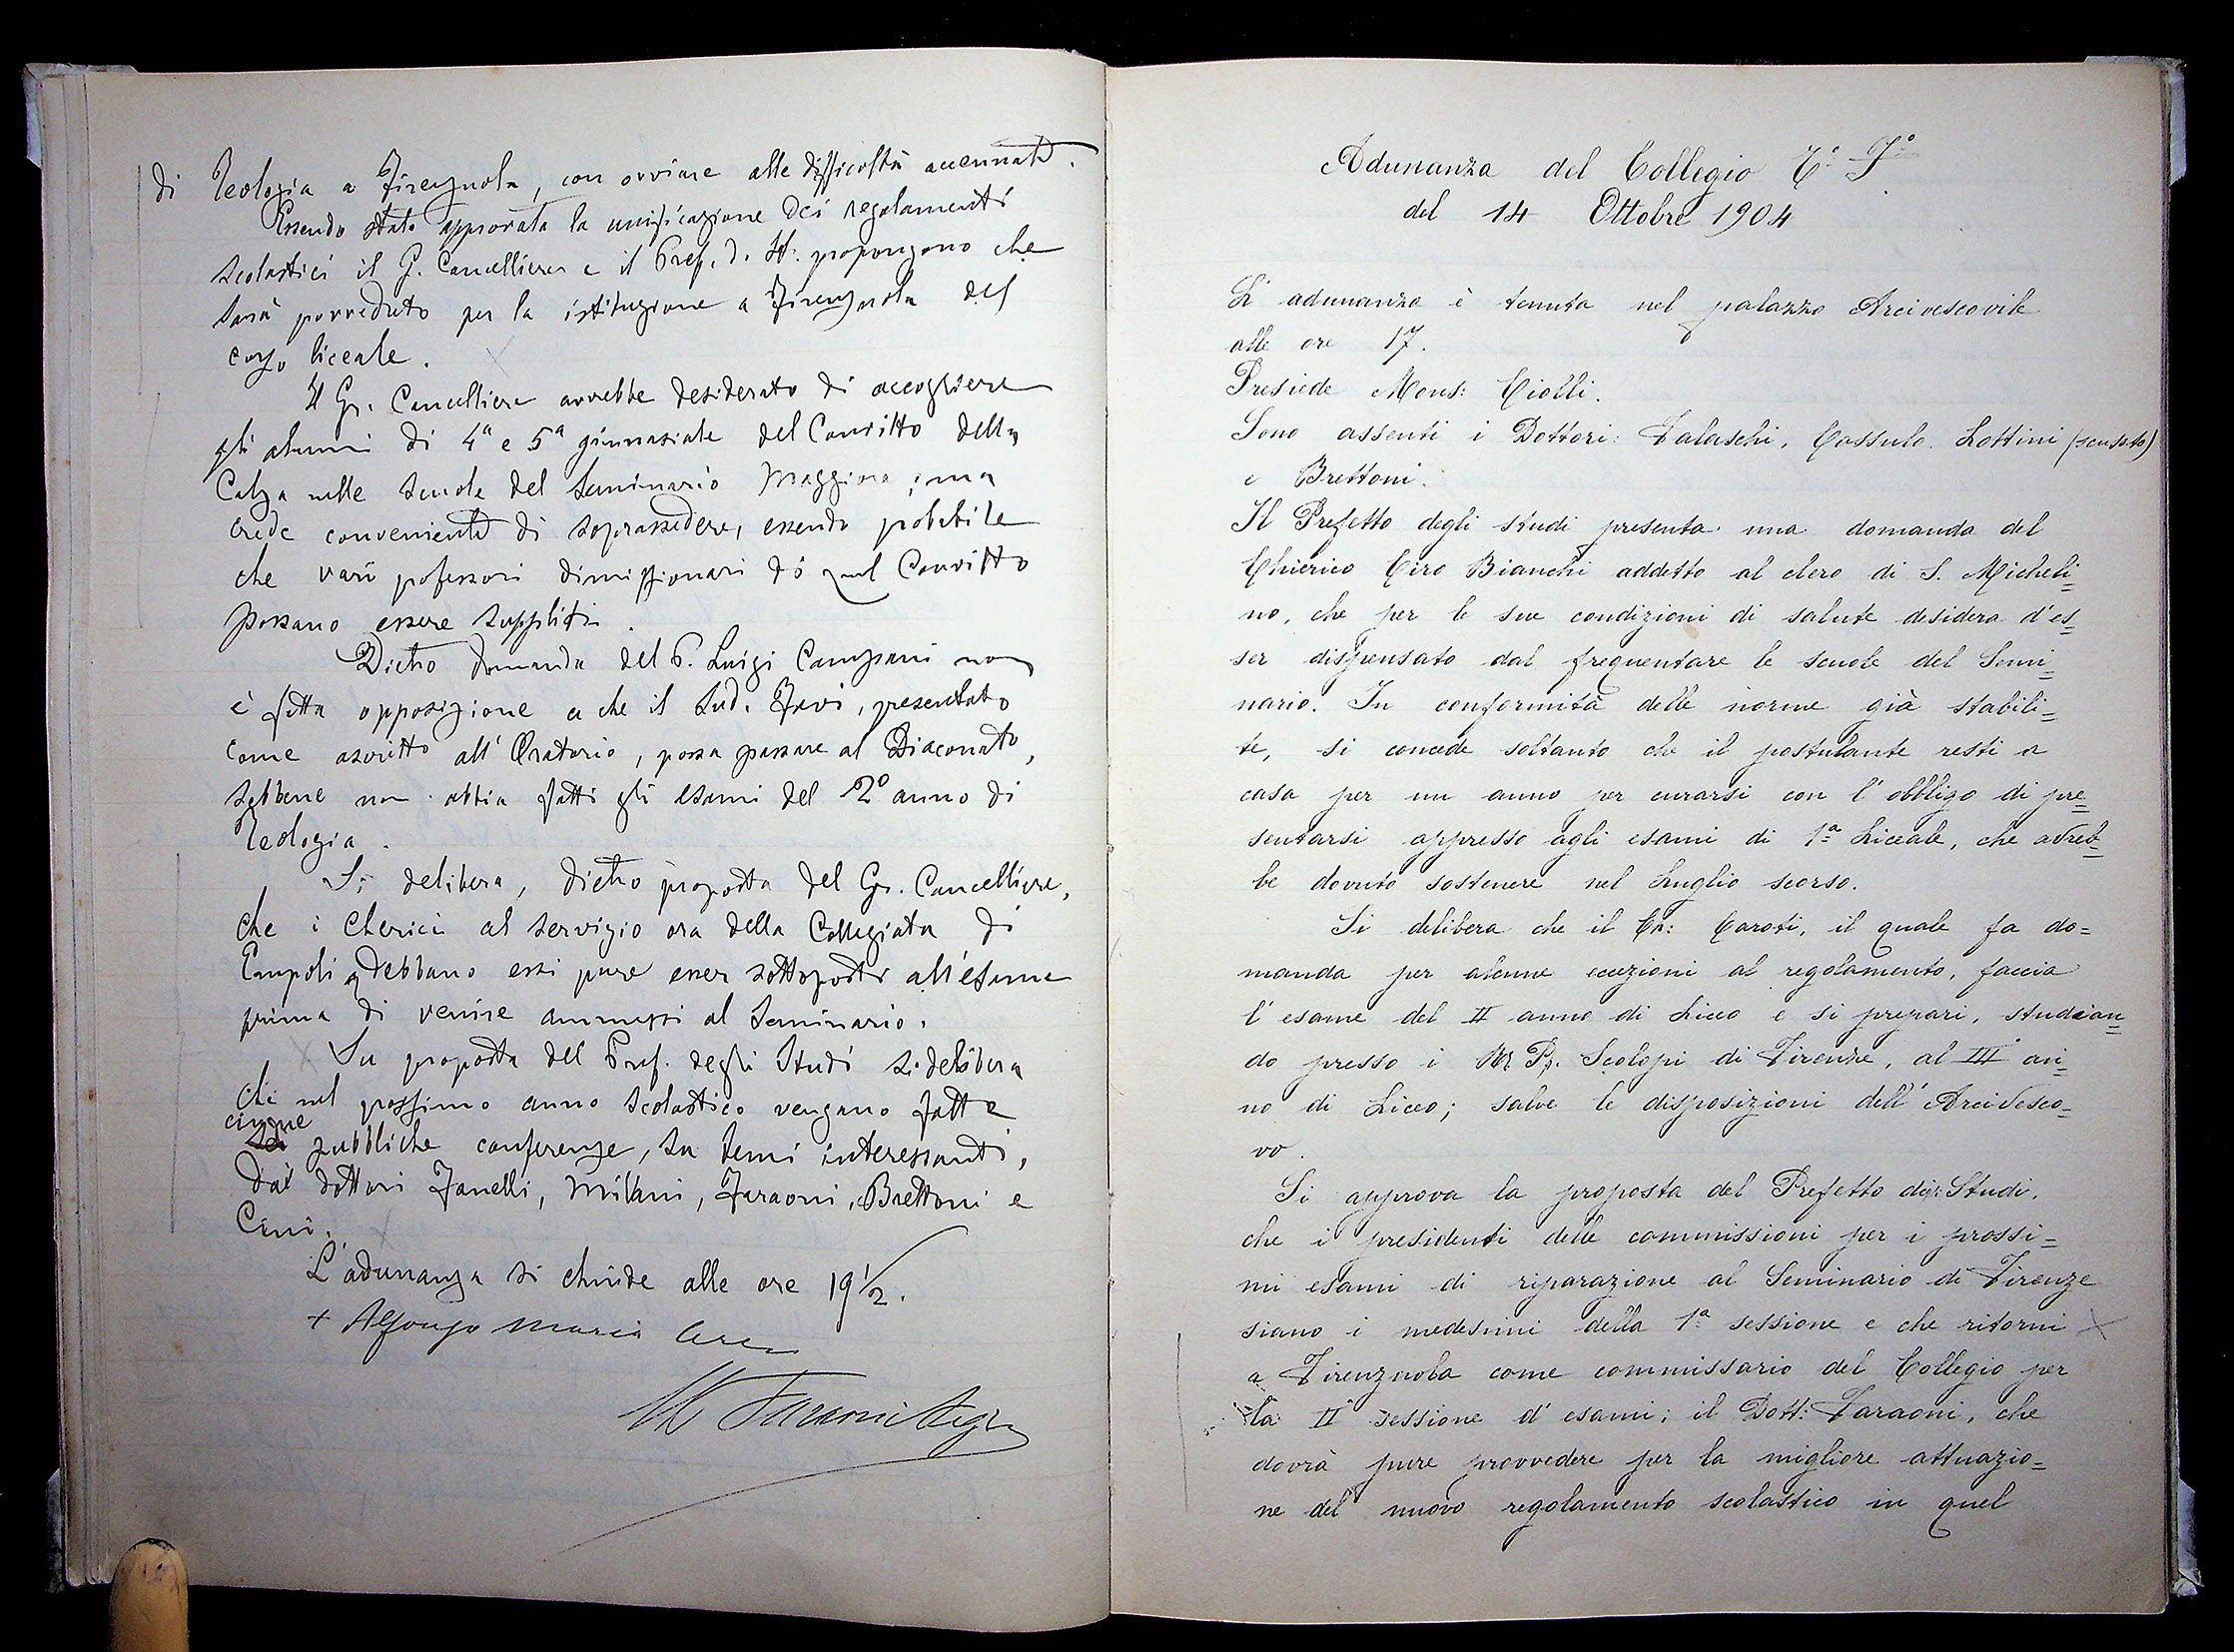 di Teologia a Firenzuola, con ovviare alle difficoltà accennate.
Essendo stata approvata la unificazione dei regolamenti
scolastici il G. Cancelliere e il Pref. d. St: propongono che
sarà provveduto per la istituzione a Firenzuola del
corso liceale.
Il Gr. Cancelliere avrebbe desiderato di accogliere
gli alunni di 4ª e 5ª ginnasiale del Convitto della
Calza nelle scuole del Seminario Maggiore; ma
crede conveniente di soprassedere, essendo probabile
che varii professori dimissionari di quel Convitto
possano essere suppliti.
Dietro domanda del P. Luigi Campani non
è fatta opposizione a che il Sud. Favi, presentato
come ascritto all' Oratorio, possa passare al Diaconato,
sebbene non abbia fatti gli esami del 2º anno di
Teologia.
Si delibera, dietro proposta del Gr. Cancelliere,
che i Cherici al servizio ora della Collegiata di
Empoli debbano essi pure esser sottoposti all'esame
prima di venire ammessi al Seminario.
Su proposta del Pref. degli Studi si delibera
che nel prossimo anno scolastico vengano fatte
cinque
sei pubbliche conferenze, su temi interessanti,
dai dottori Fanelli, Milani, Faraoni, Brettoni e
Cini.
L'adunanza si chiude alle ore 19½.
+ Alfonso Maria Arc.
Faraoni Segr.
Adunanza del Collegio Tº. Fº.
del 14 Ottobre 1904
L' adunanza è tenuta nel palazzo Arcivescovile
alle ore 17.
Presiede Mons: Ciolli.
Sono assenti i Dottori: Falaschi, Cassulo. Lottini (scusato)
e Brettoni.
Il Prefetto degli studi presenta una domanda del
Chierico Ciro Bianchi addetto al clero di S. Micheli=
no, che per le sue condizioni di salute desidera d'es=
ser dispensato dal frequentare le scuole del Semi=
nario. In conformità delle norme già stabili=
te, si concede soltanto che il postulante resti a
casa per un anno per curarsi con l' obbligo di pre=
sentarsi appresso agli esami di 1ª Liceale, che avreb=
be dovuto sostenere nel Luglio scorso.
Si delibera che il Ch: Caroti, il quale fa do=
manda per alcune eccezioni al regolamento, faccia
l' esame del II anno di Liceo e si prepari, studian=
do presso i RR. Pp. Scolopi di Firenze, al III an=
no di Liceo; salve le disposizioni dell' Arcivesco=
vo.
Si approva la proposta del Prefetto dgi: Studi.
che i presidenti delle commissioni per i prossi=
mi esami di riparazione al Seminario di Firenze
siano i medesimi della 1ª sessione e che ritorni
a Firenzuola come commissario del Collegio per
la II sessione d' esami; il Dott: Faraoni, che
dovrà pure provvedere per la migliore attuazio=
ne del nuovo regolamento scolastico in quel